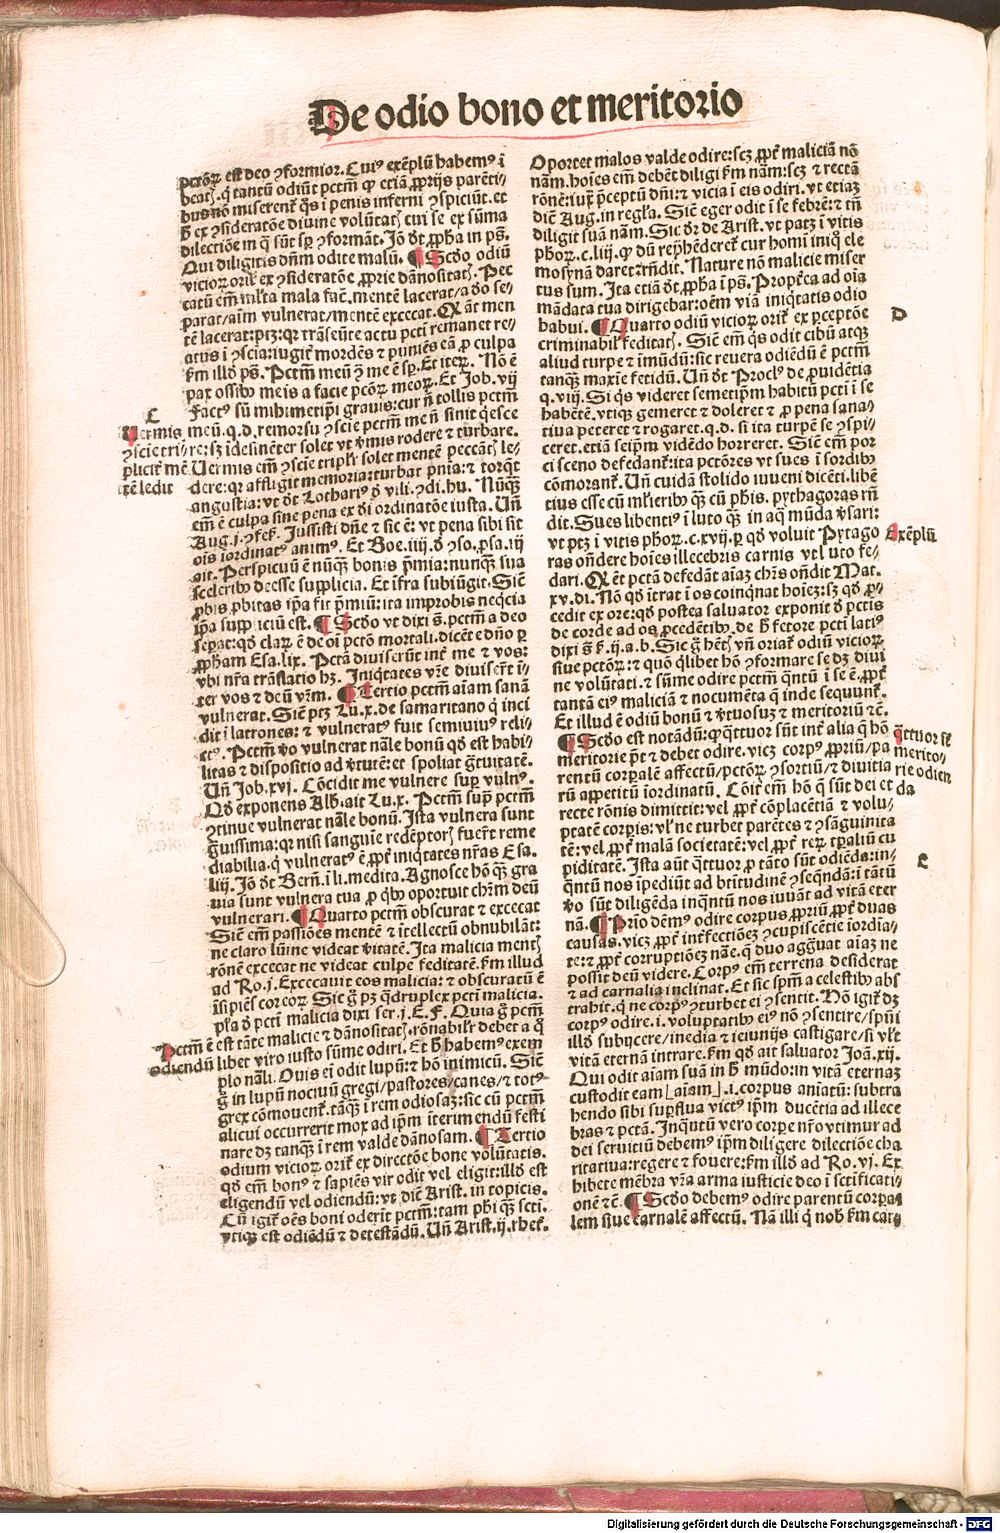 De odio bono et meritorio
pctōꝝ est deo ꝯformior. Cuiꝰ exēplū habemꝰ ī
beatꝭ. q̇ tantū odiūt pctm̄ ꝙ etiā ꝓprijs parēti-
busnō miserent᷑ q̄s ī penis inferni ꝯspiciūt. et
ħ ex ꝯsideratōe diuine volūtatꝭ cui se ex sūma
dilectiōe in q̄ sūt sꝑ ꝯformāt. Jō dt̄ ꝓpha in ps̄.
Qui diligitis dn̄m odite malū. ¶ Scd̄o odiū
vicioꝝ orit᷑ ex ꝯsideratōe, ꝓprie dānositatꝭ. Pec
catū em̄ ml̓ta mala fac̄. mentē lacerat/a dō se-
parat/aīm vulnerat/mentē excecat. Qr̄ āt men
tē lacerat: ptꝫ: qꝛ trāseūte actu pcti remanet re-
atus ī ꝯscīa: iugit᷑ mordēs ⁊ puniēs eā ꝓ culpa
km̄ illd̓ ps̄. Pctm̄ meū ꝯ me ē sꝑ. Et iteꝝ. Nō ē
pax ossibꝰ meis a facie pcōꝝ meoꝝ. Et Job. vij
Factꝰ sū mihimetip̄i grauis: cur n̄ tollis pctm̄
meū. q. d. remorsu ꝯscīe pctm̄ me n̄ sinit q̇esce
re: sꝫ idesinēter solet vt v̓mis rodere ⁊ turbare.
Uermis em̄ ꝯscīe tripl̓r solet mentē peccātꝭ le-
dere: qꝛ affligit memoria: turbat pn̄ia: ⁊ torq̄t
angustia: vt dt̄ Lothariꝰ d̓ vili. ꝯdi. hu. Nūq̄ꝫ
em̄ ē culpa sine pena ex dī ordinatōe iusta. Un̄
Aug. j. ꝯfes̄. Jussisti dn̄e ⁊ sic ē: vt pena sibi sit
oīs iordinatꝰ animꝰ. Et Boe. iiij. d̓ ꝯso. ꝓsa. iij
ait. Perspicuū ē nūq̄ꝫ bonis p̄mia: nunq̄ꝫ sua
sceleribꝰ deesse supplicia. Et īfra subiūgit. Sic̄
ꝓbis ꝓbitas ip̄a fit p̄miū: ita improbis neq̇cia
ip̄a suppliciū est. ¶ Scd̄o vt dixi s̄. pctm̄ a deo
sepat: qd̓ claꝝ ē de oī pctō mortali. dicēte dn̄o ꝑ
ꝓpham Esa. lix. Pctā diuiserūt int᷑ me ⁊ vos:
vbi nr̄a trāslatio hꝫ. Iniq̇tates vr̄e diuiser̄t ī-
ter vos ⁊ deū vr̄m. ¶ Tertio pctm̄ aīam sanā
vulnerat. Sic̄ ptꝫ Lu. x. de samaritano q̇ inci
dit ī latrones: ⁊ vulneratꝰ fuit semiuiuꝰ reli-
ctꝰ. Pctm̄ v̓o vulnerat nāle bonū qd̓ est habi-
litas ⁊ dispositio ad v̓tutē: et spoliat g̓tuitatē.
Un̄ Job. xvj. Cōcidit me vulnere suꝑ vulnꝰ.
Qd̓ exponens Alb̓. ait Lu. x. Pctm̄ suꝑ pctm̄
ꝯtinue vulnerat nāle bonū. Ista vulnera sunt
g̓uissima: qꝛ nisi sanguīe redēptorꝭ fuer̄t reme
diabilia. q̇ vulneratꝰ ē ꝓpt᷑ iniq̇tates nr̄as Esa.
liij. Jō dt̄ Bern̄. ī li. medita. Agnosce hō q̄ꝫ gra
uia sunt vulnera tua ꝓ qꝰ oportuit chr̄m deū
vulnerari. ¶ Quarto pctm̄ obscurat ⁊ excecat
Sic̄ em̄ passiōes mentē ⁊ ītellectū obnubilāt:
ne claro lūine videat v̓itatē. Ita malicia mentꝭ
rōnē excecat ne videat culpe feditatē. km̄ illud
ad Ro. j. Excecauit eos malicia: ⁊ obscuratū ē
īsipiēs cor eoꝝ. Sic g̓ pꝫ q̄druplex pcti malicia.
pl̓a d̓ pcti malicia dixi ser. j. E. F. Quia g̓ pctm̄
ē est tāte malicie ⁊ dānositatꝭ. rōnabil̓r debet a q̄
libet viro iusto sūme odiri. Et ħ habemꝰ exem
plo nāli. Ouis ei odit lupū: ⁊ hō inimicū. Sic̄
g̓ in lupū nociuū gregi/pastores/canes/⁊ totꝰ
grex cōmouent᷑. tāq̄ꝫ ī rem odiosaꝫ: sic cū pctm̄
alicui occurrerit mox ad ip̄m īterimendū festi
nare dꝫ tanq̄ꝫ ī rem valde dānosam. ¶ Tertio
odium vicioꝝ orit᷑ ex directōe bone volūtatis.
qd̓ em̄ bonꝰ ⁊ sapiēs vir odit vel eligit: illd̓ est
eligendū vel odiendū: vt dic̄ Arist. in topicis.
Cū igit᷑ oēs boni oderit pctm̄: tam phi q̄ꝫ scti.
vtiqꝫ est odiēdū ⁊ detestādū. Un̄ Arist. ij. rhet᷑.
C
Uermis
ꝯscīe tri-
plicit᷑ mē
tē ledit
Pctm̄
odiendū
Oportet malos valde odire: scꝫ ꝓpt᷑ maliciā nō
nām. hoīes em̄ debēt diligi km̄ nām: scꝫ ⁊ rectā
rōnē: iuꝝ p̄ceptū dn̄i: ⁊ vicia ī eis odiri. vt etiaꝫ
dic̄ Aug. in regl̓a. Sic̄ eger odit ī se febrē: ⁊ tn̄
diligit suā nām. Sic dr̄ de Arist. vt patꝫ ī vitis
phoꝝ. c. liij. ꝙ dū rep̄hēderet᷑ cur homī iniq̇ ele
mosynā daret: rn̄dit. Nature nō malicie miser
tus sum. Ita etiā dt̄ ꝓpha ī ps̄. Propt̓ea ad oīa
mādata tua dirigebar: oēm viā iniq̇tatis odio
habui. ¶ Quarto odiū vicioꝝ orit᷑ ex ꝑceptōe
criminabil̓ feditatꝭ. Sic̄ em̄ q̄s odit cibū atqꝫ
aliud turpe ⁊ īmūdū: sic reuera odiēdū ē pctm̄
tanq̄ꝫ maxīe fetidū. Un̄ dt̄ Proclꝰ de ꝓuidētia
q. viij. Si q̄s videret semetip̄m habitū pcti ī se
habētē. vtiqꝫ gemeret ⁊ doleret ⁊ ꝓ pena sana-
tiua peteret ⁊ rogaret. q. d. si ita turpē se ꝯspi-
ceret. etiā seip̄m vidēdo horreret. Sic̄ em̄ por
ci sceno defedant᷑: ita pctōres vt sues ī sordibꝰ
cōmorant᷑. Un̄ cuidā stolido iuueni dicēti. libē
tius esse cū ml̓ieribꝰ q̄ꝫ cū phis. pythagoras rn̄
dit. Sues libentiꝰ ī luto q̄ꝫ in aq̄ mūda v̓sari:
vt ptꝫ ī vitis phoꝝ. c. xvij. ꝑ qd̓ voluit Pytago
ras on̄dere hoīes illecebris carnis vel uto fe-
dari. Qr̄ et pctā defedāt aīaꝫ chr̄s on̄dit Mat.
xv. di. Nō qd̓ ītrat ī os coinq̇nat hoīeꝫ: sꝫ qd̓ ꝓ-
cedit ex ore: qd̓ postea saluator exponit d̓ pctis
de corde ad os ꝓcedētibꝰ. de ħ fetore pcti latiꝰ
dixi s̄ ꝑ. ij. a. b. Sic g̓ hētꝭ vn̄ oriat᷑ odiū vicioꝝ
siue pctōꝝ: ⁊ quō q̇libet hō ꝯformare se dꝫ diui
ne volūtati. ⁊ sūme odire pctm̄ q̄ntū ī se ē. ꝓpt᷑
tantā eiꝰ maliciā ⁊ nocumēta q̄ inde sequunt᷑.
Et illud ē odiū bonū ⁊ v̓tuosuꝫ ⁊ meritoriū ⁊c̄.
¶ Scd̄o est notādū: ꝙ q̇ttuor sūt int᷑ alia q̄ hō
meritorie pt̄ ⁊ debet odire. vicꝫ corpꝰ ꝓpriū/pa
rentū corpalē affectū/pctōꝝ ꝯsortiū/⁊ diuitia
rū appetitū iordinatū. Cōit᷑ em̄ hō q̄ sūt dei et
recte rōnis dimittit: vel ꝓpt᷑ cōplacētiā ⁊ volu-
ptatē corpis: vl̓ ne turbet parētes ⁊ ꝯsāguinita
tē: vel ꝓpt᷑ malā societatē: vel ꝓpt᷑ reꝝ tꝑaliū cu
piditatē. Ista aūt q̇ttuor ꝓ tāto sūt odiēda: in-
q̄ntū nos īpediūt ad br̄titudinē ꝯseq̄ndā: ī tātū
v̓o sūt diligēda inq̄ntū nos iuuāt ad vitā eter
nā. ¶ Prīo dēmꝰ odire corpus ꝓpriū ꝓpt᷑ duas
causas. vicꝫ ꝓpt᷑ int᷑fectiōeꝫ ꝯcupiscētie iordia-
te: ⁊ ꝓpt᷑ corruptiōeꝫ nāe. q̄ duo aggrauāt aīaꝫ ne
possit deū videre. Corpꝰ em̄ terrena desiderat
⁊ ad carnalia inclinat. Et sic spm̄ a celestibꝰ abs
trahit. q̇ ne corpꝰ ꝯturbet ei ꝯsentit. Hō igit᷑ dꝫ
corpꝰ odire. i. voluptatibꝰ eiꝰ nō ꝯsentire/spūi
illd̓ subijcere/inedia ⁊ ieiunijs castigare/si vl̓t
vitā eternā intrare. km̄ qd̓ ait saluator Joā. xij.
Qui odit aīam suā in ħ mūdo: in vitā eternaꝫ
custodit eam [aīam]. i. corpus aniatū: subtra
hendo sibi supflua victꝰ ip̄m ducētia ad illece
bras ⁊ pctā. Inq̄ntū vero corpe nr̄o vtimur ad
dei seruitiū debemꝰ ip̄m diligere dilectiōe cha
ritatiua: regere ⁊ fouere: km̄ illd̓ ad Ro. vj. Ex
hibete mēbra vr̄a arma iusticie deo ī sctificati-
onē ⁊c̄. ¶ Scd̄o debemꝰ odire parentū corpa
lem siue carnalē affectū. Nā illi q̇ nob̓ km̄ car-
D
Exēplū
q̇ttuor sūt
merito-
rie odien
da
E